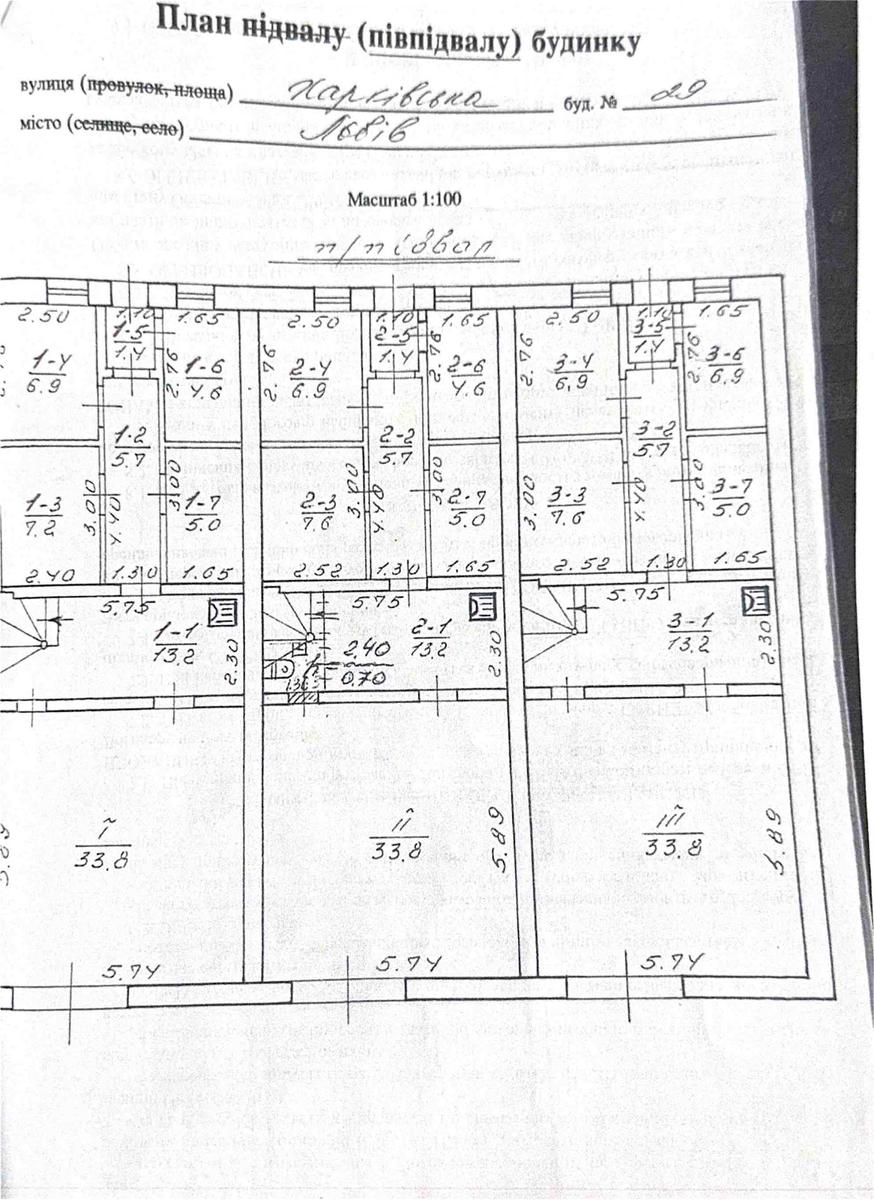 План підвалу (півпідвалу) будинку
вулиця (провулок, площа) Харківська буд. № 29
місто (селище, село) Львів
Масштаб 1:100
п/підвал
2.50 1.10 1.65 2.50 1.10 1.65 2.50 1.10 1.65
1-5 2-5 3-5
1.4 1.4 1.4
2.76 2.76 2.76 2.76 2.76
1-4 1-6 2-4 2-6 3-4 3-6
6.9 4.6 6.9 4.6 6.9 6.9
1-2 2-2 3-2
5.7 5.7 5.7
3.00 3.00 3.00 3.00 3.00 3.00
1-3 1-7 2-3 2-7 3-3 3-7
7.2 5.0 7.6 5.0 7.6 5.0
4.40 4.40 4.40
2.40 1.30 1.65 2.52 1.30 1.65 2.52 1.30 1.65
5.75 5.75 5.75
1-1 2-1 3-1
13.2 13.2 13.2
2.30 2.30 2.30
h= 2.40
0.70
I II III
33.8 33.8 33.8
5.89 5.89 5.89
5.74 5.74 5.74